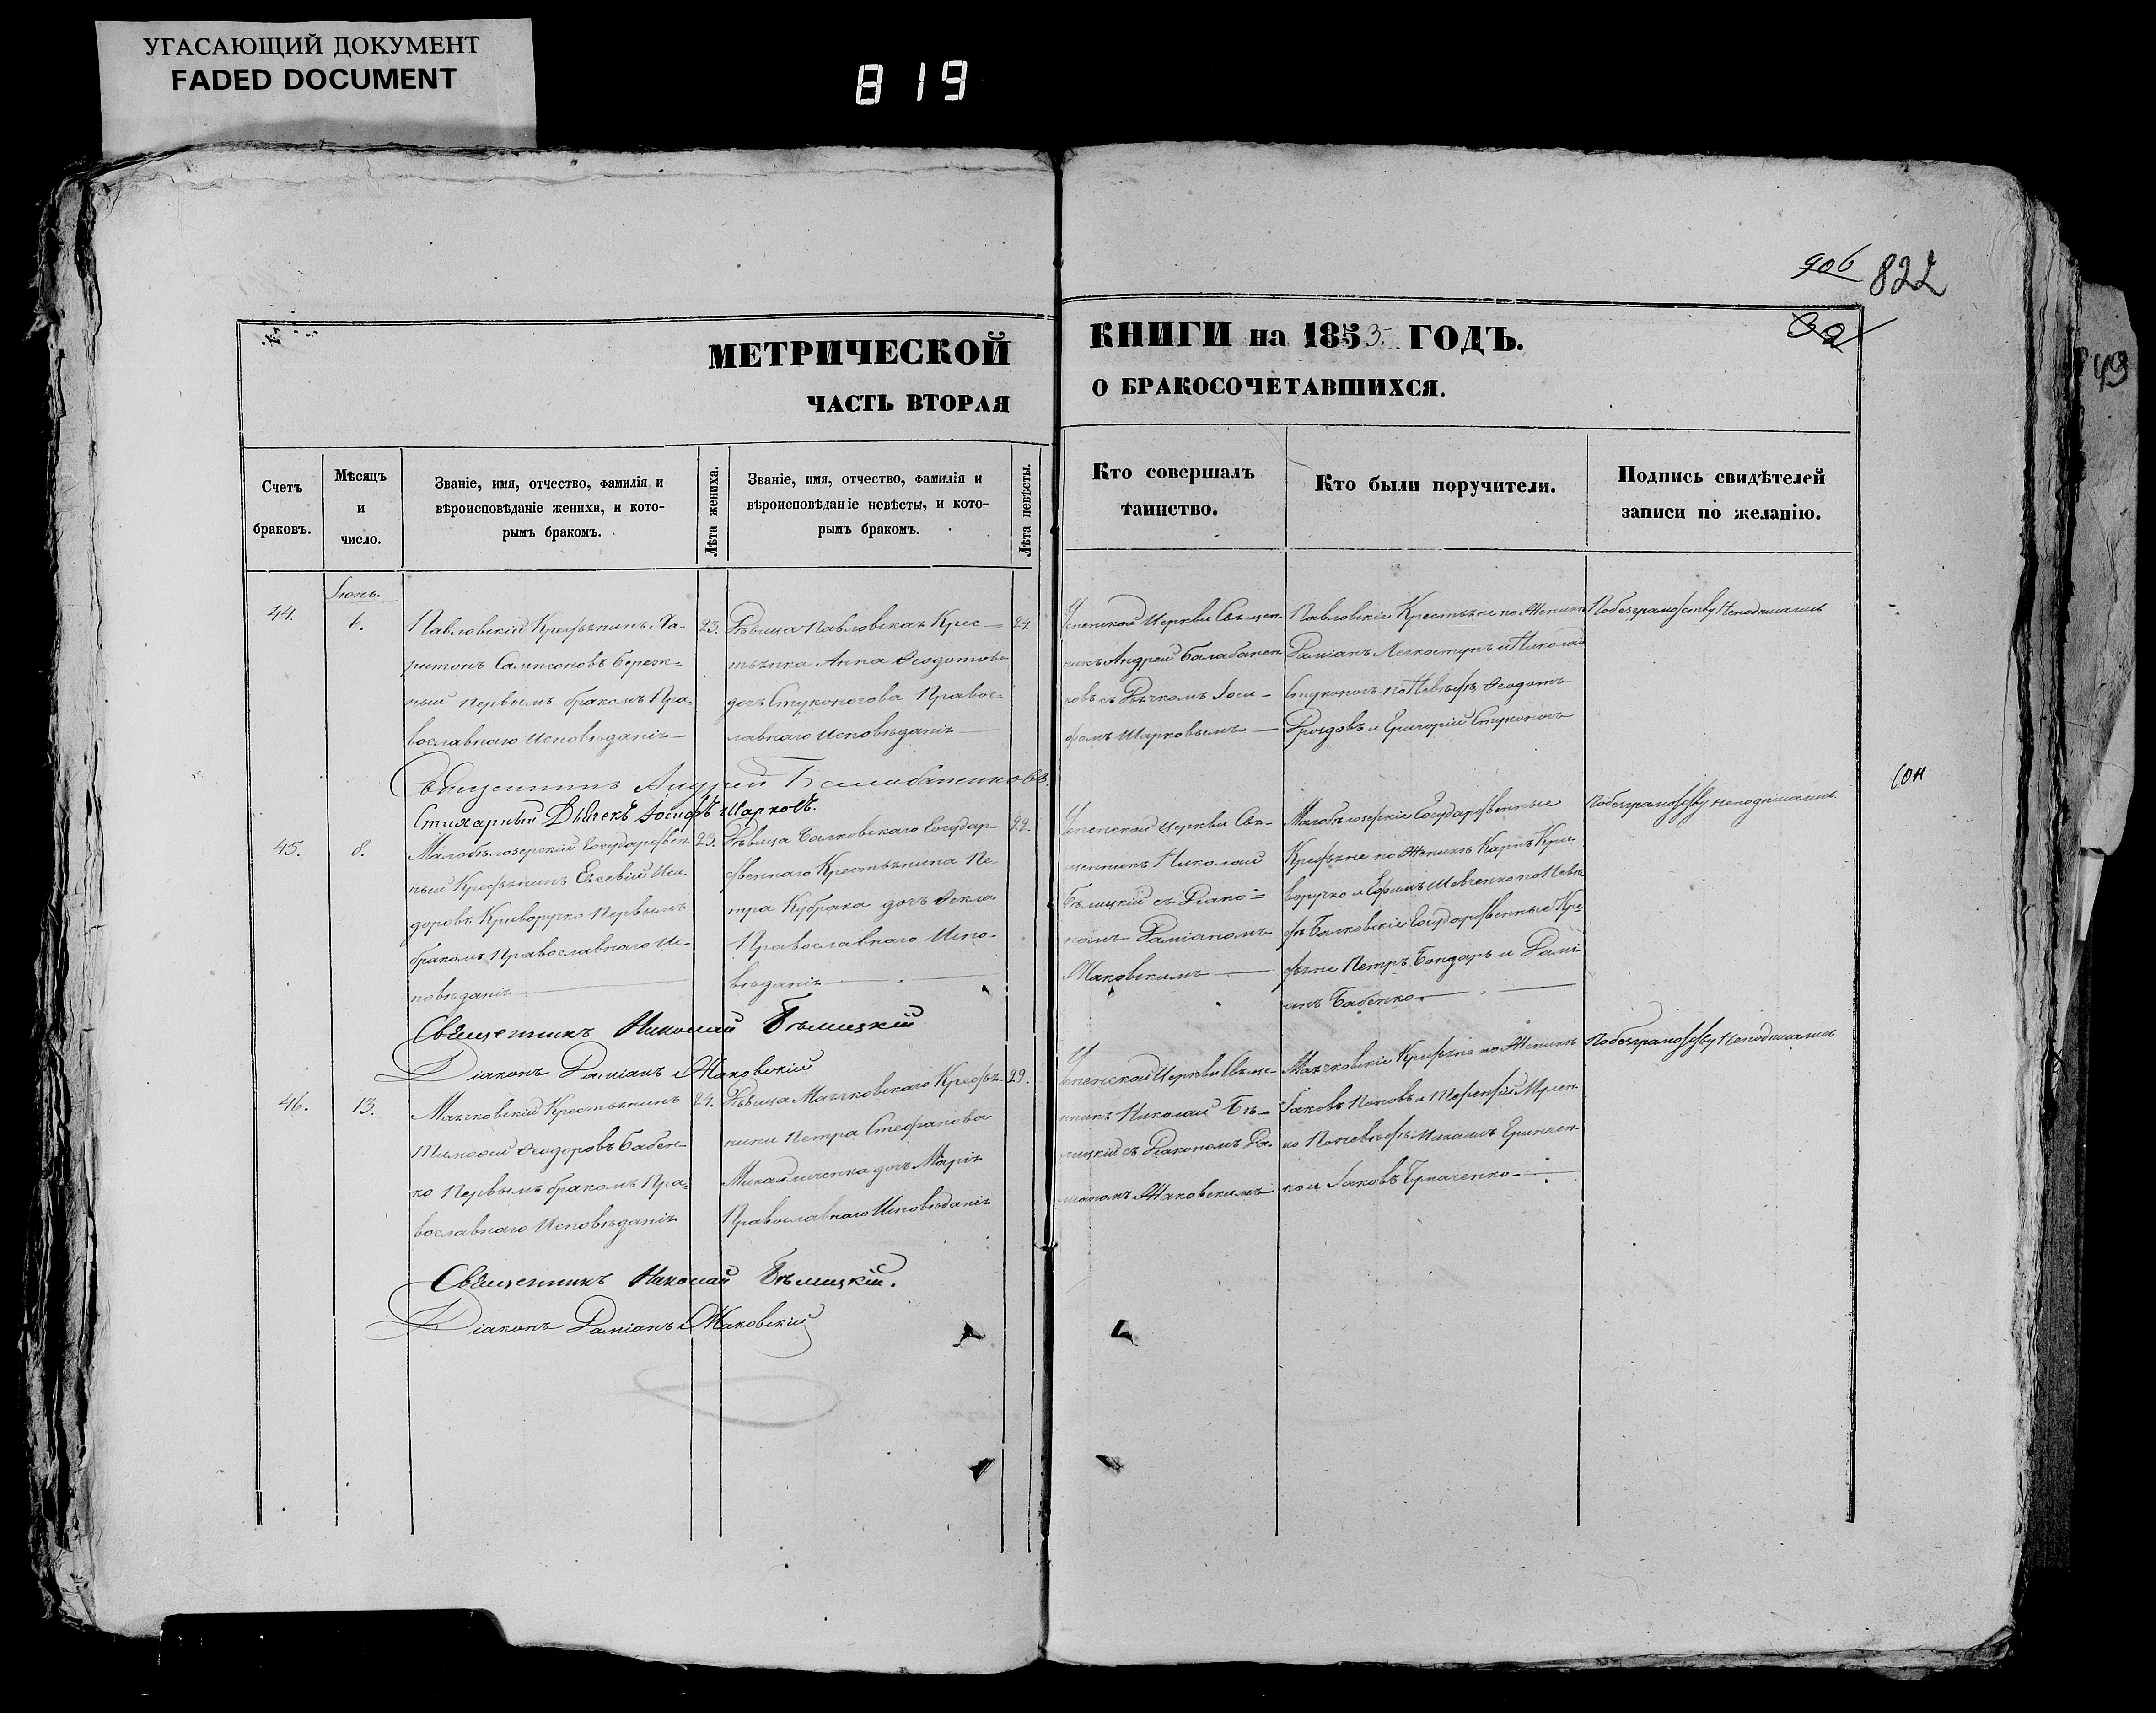 УГАСАЮЩИЙ ДОКУМЕНТ
FADED DOCUMENT
819
906 822
МЕТРИЧЕСКОЙ КНИГИ на 1853 ГОДЪ.
ЧАСТЬ ВТОРАЯ О БРАКОСОЧЕТАВШИХСЯ.
Счетъ
браковъ.
Мѣсяцъ
и
число.
Званіе, имя, отчество, фамилія и
вѣроисповѣданіе жениха, и кото-
рымъ бракомъ.
Лѣта жениха.
Званіе, имя, отчество, фамилія и
вѣроисповѣданіе невѣсты, и кото-
рымъ бракомъ.
Лѣта невѣсты.
Кто совершалъ
таинство.
Кто были поручители.
Подпись свидѣтелей
записи по желанію.
44.
Іюнь.
6.
Павловскій Крестьянинъ Ха-
ритонъ Сампсоновъ Береж=
ный первымъ бракомъ Пра=
вославнаго Исповѣданія
23.
Дѣвица Павловская Крес-
тьянка Анна Ѳеодотова
дочь Стуконогова Правос=
лавнаго Исповѣданія
Успенской Церкви Священ-
никъ Андрей Балабанен
ковъ съ Дьячкомъ Іоси-
фомъ Шарковымъ
Павловскіе Крестьяне по Женихѣ
Даміанъ Легкоступъ и Николай
Стуконогъ по Невѣстѣ Ѳеодотъ
Дроздовъ и Григорій Стуконогъ
По безграмотству Неподписались
Священникъ Андрей Балабаненковъ.
Стихарный Дьячекъ Іосифъ Шарковъ.
45.
8.
Малобѣлозерскій Государствен
ный Крестьянинъ Евсевій Иси-
доровъ Криворучко Первымъ
бракомъ Православнаго Ис-
повѣданія
23.
Дѣвица Балковскаго Государ-
ственнаго Крестьянина Пе
тра Кубрака дочь Ѳекла
Православнаго Испо-
вѣданія
22.
Успенской Церкви Свя-
щенникъ Николай
Бѣлицкій съ Діако=
номъ Даміаномъ
Жаковскимъ
Малобѣлозерскіе Государственные
Крестьяне по Женихѣ Карпъ Кри-
воручко и Ефимъ Шевченко по Невѣ
стѣ Балковскіе Государственные Кре
стьяне Петръ Бондарь и Дамі-
анъ Бабенко
По безграмотству неподписались
сон
Священникъ Николай Бѣлицкій
Діаконъ Даміанъ Жаковскій
46.
13.
Маячковскій Крестьянинъ
Тимоѳей Ѳеодоровъ Бабен-
ко Первымъ бракомъ Пра=
вославнаго Исповѣданія
24.
Дѣвица Маячковскаго Кресть-
янина Петра Стефанова
Михайличенка дочь Марія
Православнаго Исповѣданія
Успенской Церкви Священ-
никъ Николай Бѣ-
лицкій съ Діакономъ Да-
міаномъ Жаковскимъ
Маячковскіе Крестьяне по Женихѣ
Іаковъ Поповъ и Терентій
ко По невѣстѣ Михаилъ
ко и Іаковъ
По безграмотству Неподписались
Священникъ Николай Бѣлицкій.
Діаконъ Даміанъ Жаковскій